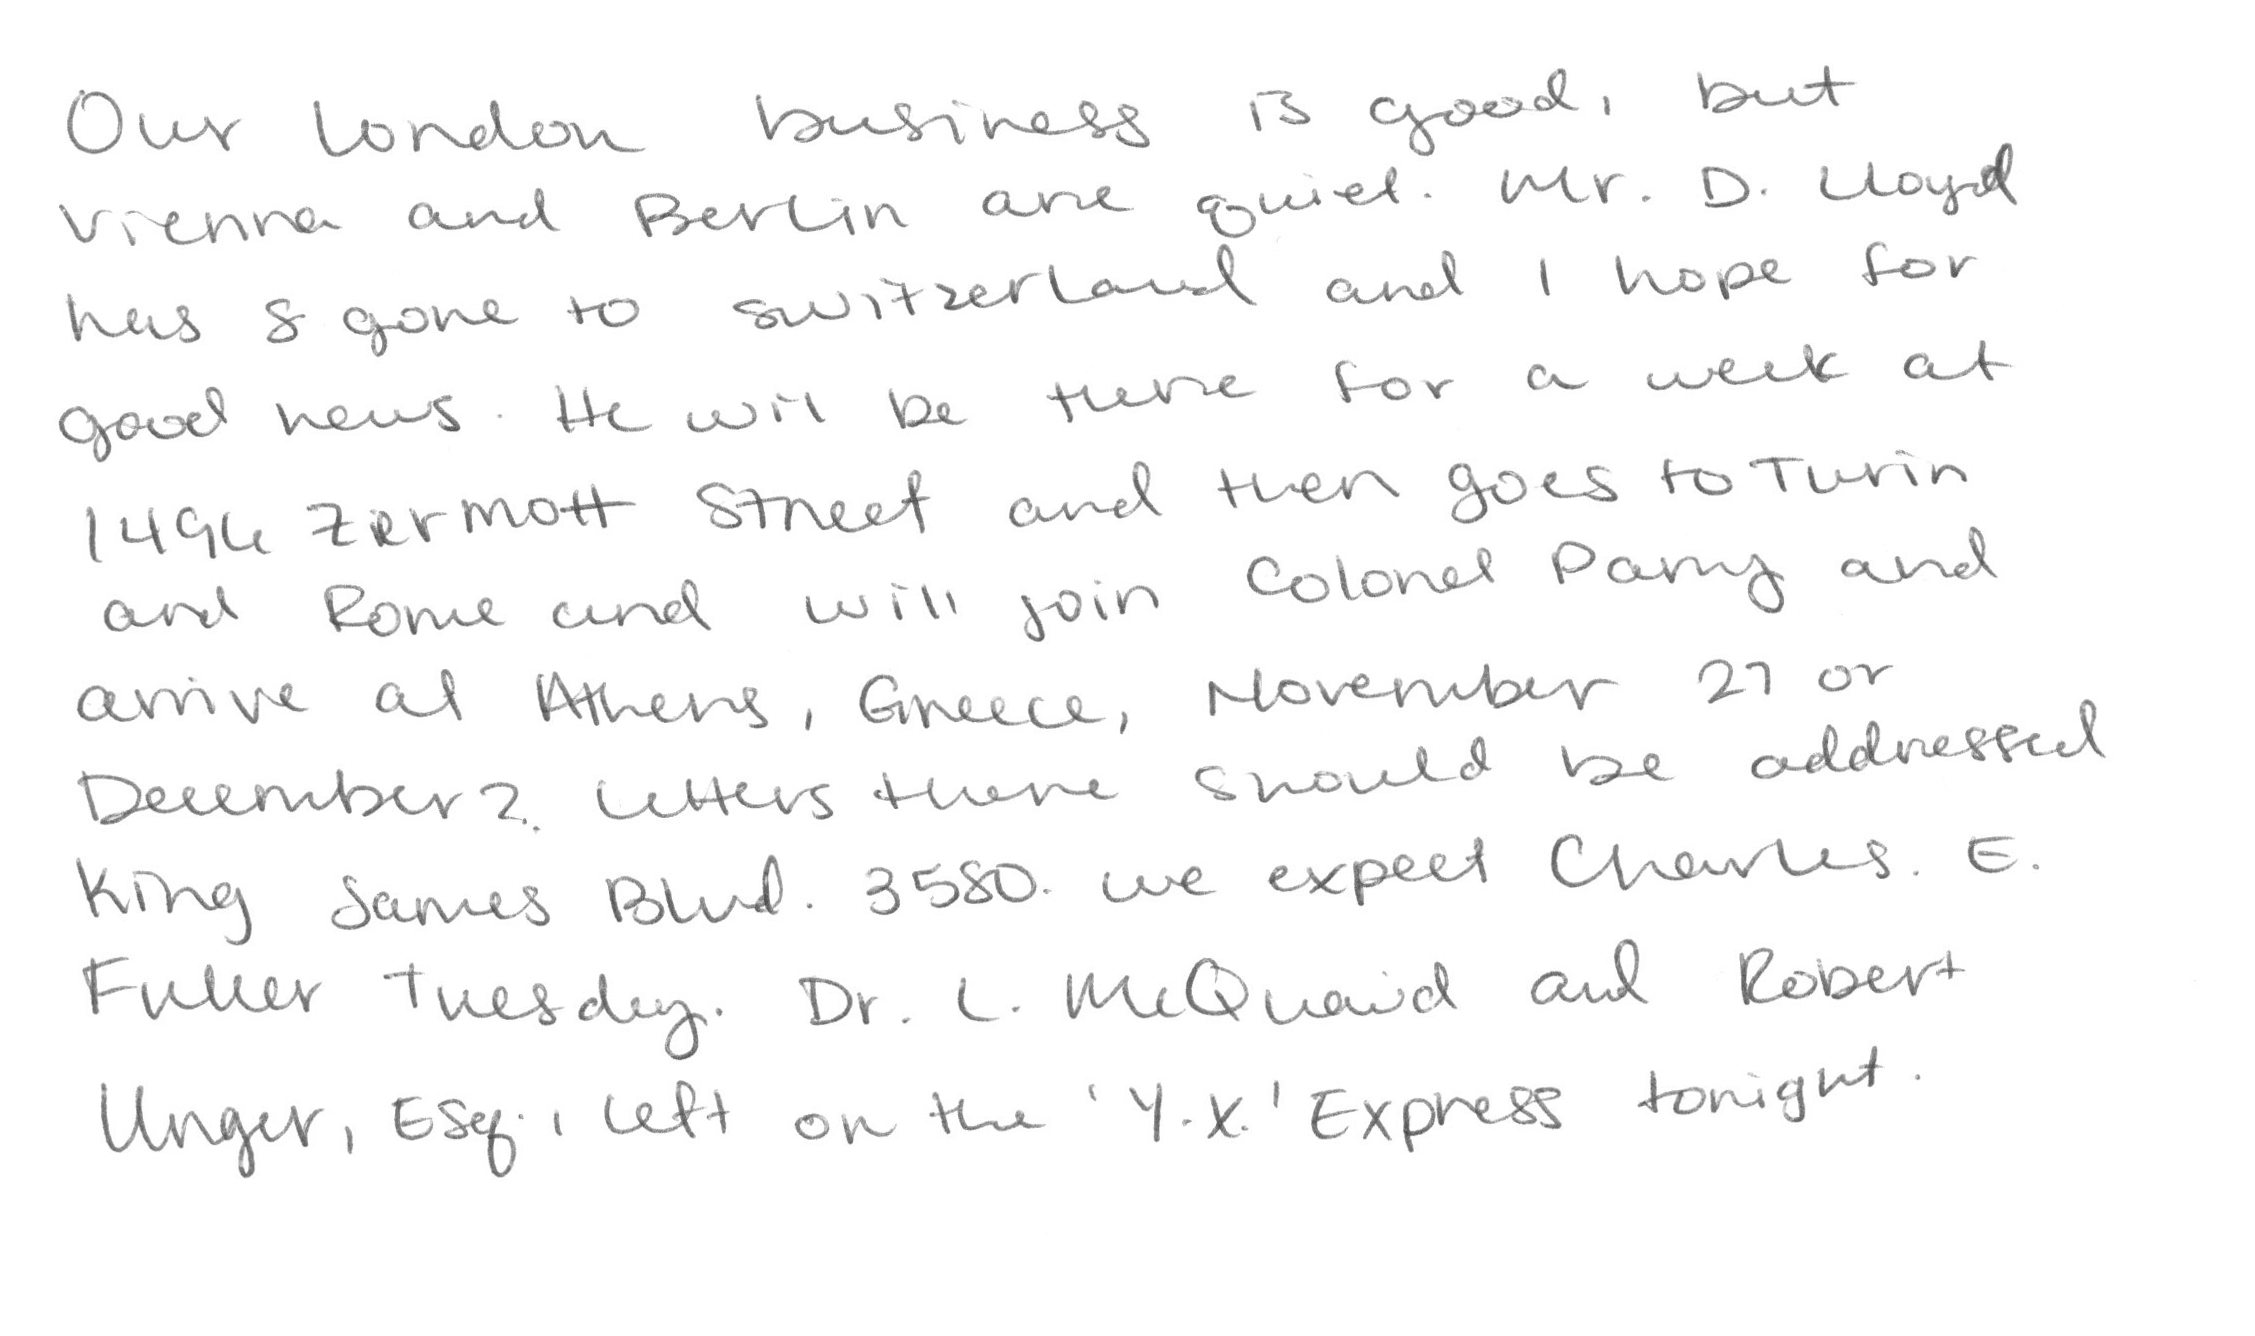 Our London business is good, but
Vienna and Berlin are quiet. Mr. D. Lloyd
has 8 gone to Switzerland and I hope for
good news. He will be there for a week at
1496 Zermott Street and then goes to Turin
and Rome and will join Colonel Parry and
arrive at Athens, Greece, November 27 or
December 2. Letters there should be addressed
King James Blvd. 3580. We expect Charles. E.
Fuller Tuesday. Dr. L. McQuaid and Robert
Unger, Esq., left on the 'Y.X.' Express tonight.